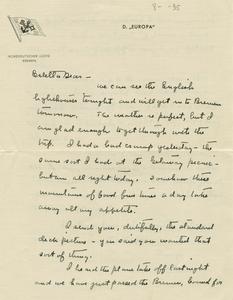 8- -35
NORDDEUTSCHER LLOYD
BREMEN
D. „EUROPA"
Dear –
we can see the English
lighthouses tonight and will get in to Bremen
tomorrow. The weather is perfect, but I
am glad enough to get through with the
trip. I had a bad yesterday – the
same sort I had at the picnic –
but am all right today. Somehow these
mountains of food five times a day take
away all my appetite.
I send you, dutifully, the standard
deck picture – you said you wanted that
sort of thing.
I heard the plane take off last night
and we have just passed the Bremen, bound for